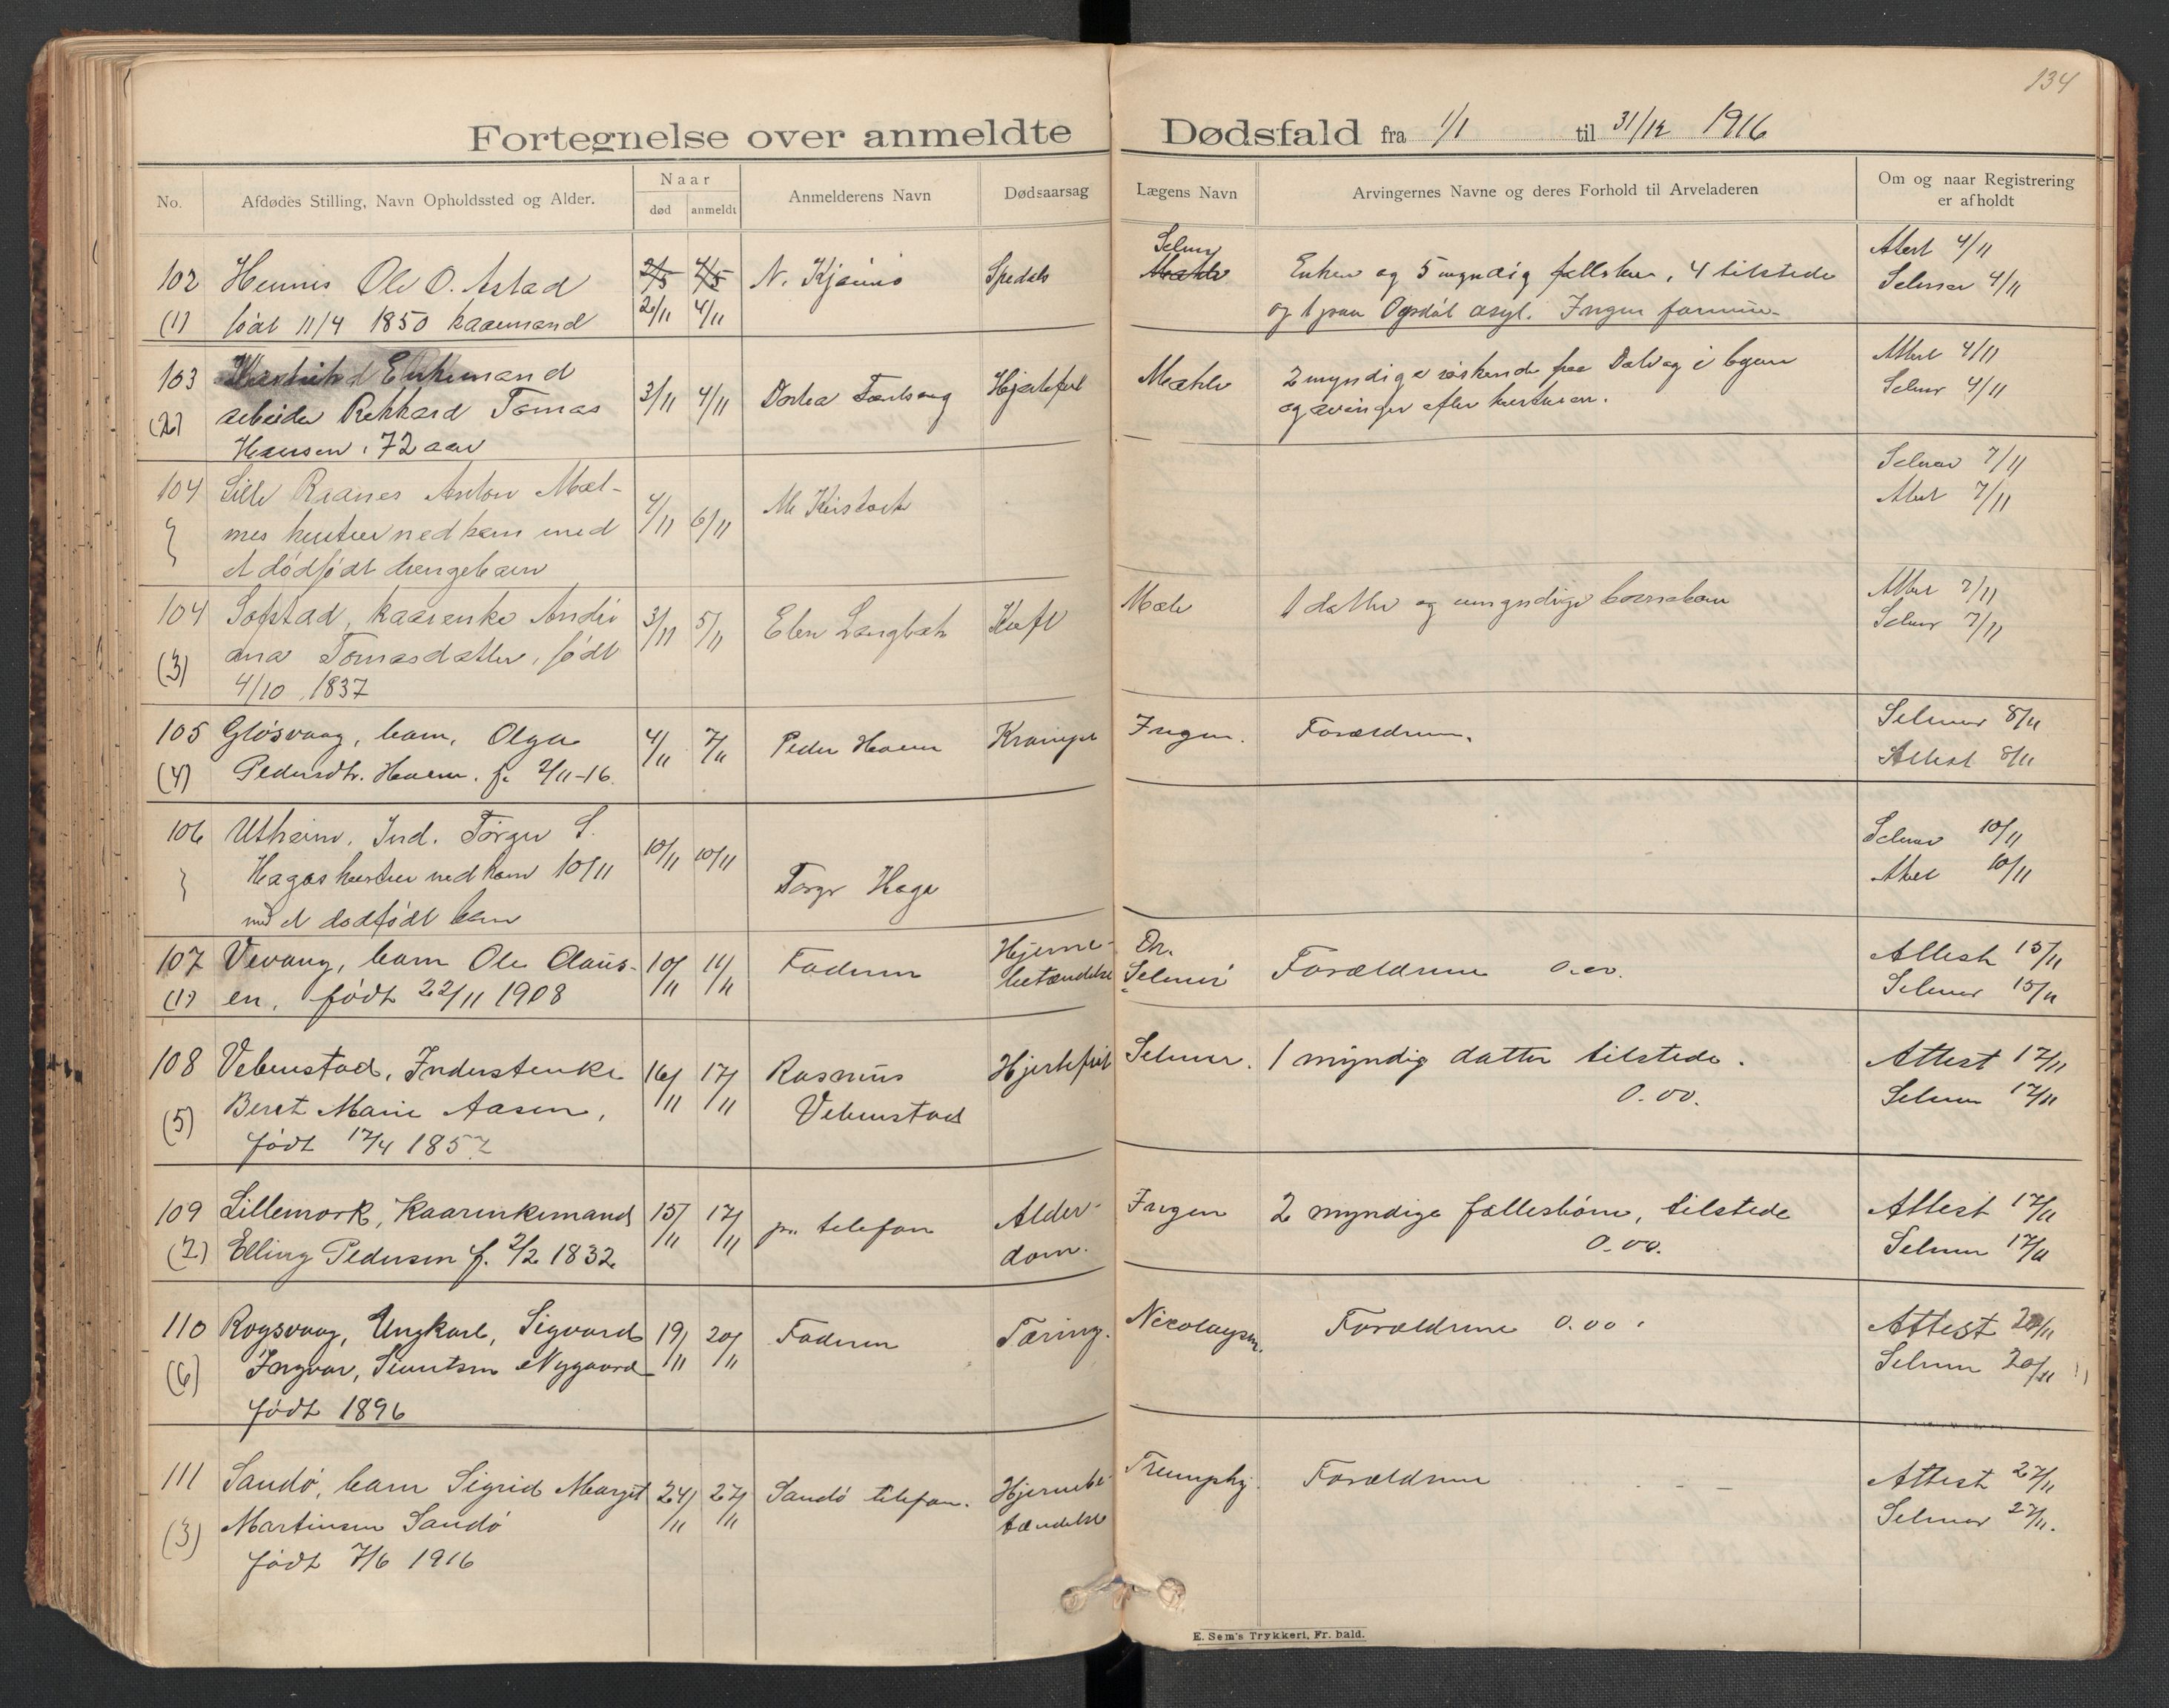 134
Fortegnelse over anmeldte Dødsfald fra 1/1 til 31/12 1916
No.
Afdødes Stilling, Navn Opholdssted og Alder.
Naar
død
anmeldt
Anmelderens Navn
Dødsaarsag
Lægens Navn
Arvingernes Navne og deres Forhold til Arveladeren
Om og naar Registrering
er afholdt
102 Hennis Ole O. Astad 2/5 4/5 N. Kjønnø Spedals
(1) født 11/4 1850 kaarmand 2/11 4/11
Selmer
Mæhle Enken og 5 myndig fellsbarn, 4 tilstede
og 1 paa Opdøl asyl. Ingen formue
Attest 4/11
Selmer 4/11
103 Enkemand
(2) arbeider Rikhard Tomas 3/11 4/11 Dortea Hjertefeil
Hansen, 72 aar
Mæhle 2 myndige søskende paa Dalvag i byen
og arvinger efter hustruen.
Attest 4/11
Selmer 4/11
104 Lille Raanes Anton Mæl-
mes hustru nedkom med 4/11 6/11 M Kristock
et dødfødt drengebarn
Selmer 7/11
Attest 7/11
104 Sopstad, kaarenke Andri 3/11 5/11 Elen Langbak Kræft
(3) ana Tomasdatter, født
4/10 1837
Mæle 1 datter og umyndige barnebarn
Attest 7/11
Selmer 7/11
105 Gløsvaag, barn, Olga 4/11 7/11 Peder Hoem Krampe
(4) Pedersdtr. Hoem. f. 2/11-16.
Ingen. Forældrene.
Selmer 8/11
Attest 8/11
106 Utheim, Ind. Törger S. 10/11 10/11
Hagas hustru nedkom 10/11 Torgr Haga
med et dødfødt barn
Selmer 10/11
Attest 10/11
107 Vevang, barn Ole Claus- 10/11 11/11 Faderen Hjerne-
(1) en, født 22/11 1908 betændelse
Dr.
Selmer Forældrene 0.00.
Attest 15/11
Selmer 15/11
108 Vebenstad, Inderstenke 16/11 17/11 Rasmus Hjertefeil
(5) Beret Marie Aasen, Vebenstad
født 17/4 1857
Selmer. 1 myndig datter tilstede.
0.00.
Attest 17/11
Selmer 17/11
109 Lillemork, Kaarenkemand 15/11 17/11 pr. telefon Alder-
(2) Elling Pedersen f. 2/2 1832 dom.
Ingen 2 myndige fællesbørn, tilstede
0.00.
Attest 17/11
Selmer 17/11
110 Rogsvaag, Ungkarl, Sigvard 19/11 20/11 Faderen Tæring.
(6) Ingvar, Nygaard
født 1896
Nicolaysen. Forældrene 0.00.
Attest 20/11
Selmer 20/11
111 Sandö, barn Sigrid Margit 24/11 27/11 Sandö telefon. Hjernebe-
(3) Martinsen Sandö tændelse
født 7/6 1916
Forældrene
Attest 27/11
Selmer 27/11.
E. Sem's Trykkeri, Fr. hald.